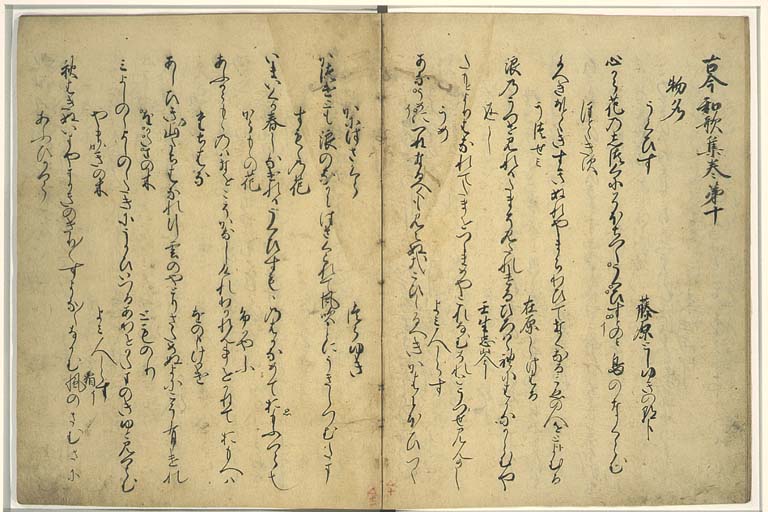 古今和歌集巻第十
物名
うくひす
藤原としゆきの朝臣
心から花のしつくにそほちつゝうくひすとのみ鳥のなくらむ
ほとゝきす
くへきほとときすきぬれやまちわひてなくなるこゑの人をとよむる
うつせみ
在原しけはる
浪のうつせみれはたまそみたれけるひろはゝ袖にはかなからむや
返し
壬生忠岑
たもとよりはなれてたまをつゝまめやこれなむそれとうつせみんかし
うめ
よみ人しらす
あなうめにつねなるへくもみえぬかなこひしかるへきかはにほひつゝ
かにはさくら
つらゆき
かつけとも浪のなかにはさくられて風吹ことにうきしつむたま
すもゝの花
いまいくか春しなけれはうくひすもゝのはなかめておもふへら也
からもゝの花
ふかやふ
あふからもゝのはなをこそかなしけれわかれんことをかねておもへは
たちはな
をのゝしけかけ
あしひきの山たちはなれ行雲のやとりさためぬ世にこそ有けれ
をかたまの木
とものり
みよしのゝよしのゝたきにうかひいつるあわをかたまのきゆとみつらむ
やまかきの木
よみ人しらす
秋はきぬいまやまかきのきり〱すよな〱なかむ風のさむさに
あふひかつら